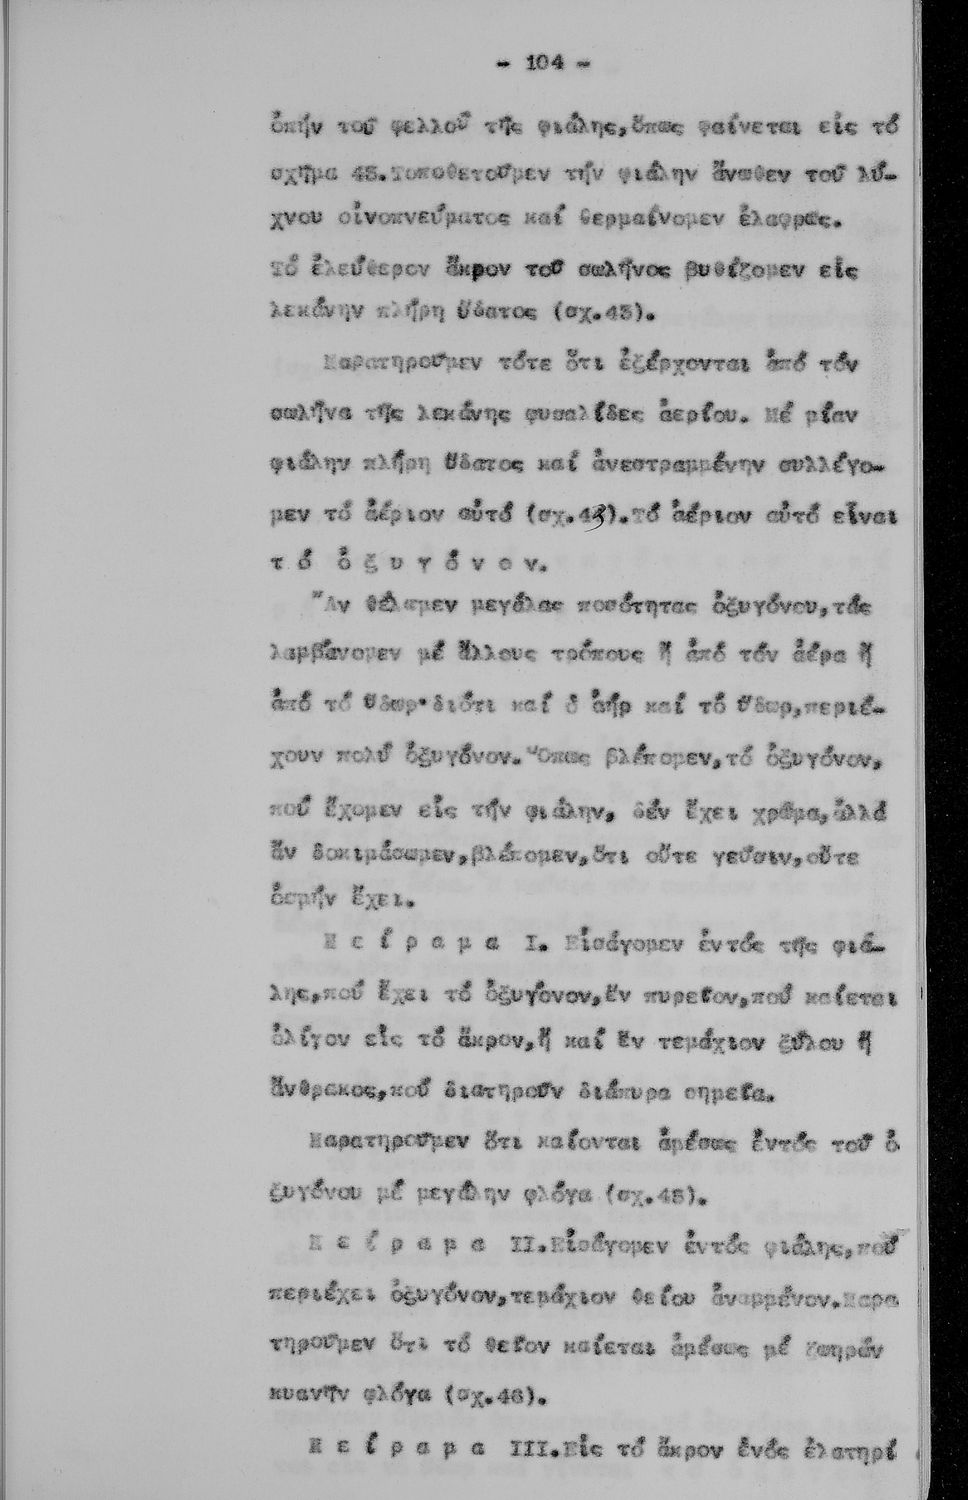 - 104 -
ὀπήν τοῦ φελλοῦ τῆς φιάλης,ὅπως φαίνεται εἰς τό
σχῆμα 43.Τοποθετοῦμεν τήν φιάλην ἄνωθεν τοῦ λύ-
χνου οἰνοπνεύματος καί θερμαίνομεν ἐλαφρῶς.
Τό ἐλεύθερον ἄκρον τοῦ σωλῆνος βυθίζομεν εἰς
λεκάνην πλήρη ὕδατος (σχ.43).
Παρατηροῦμεν τότε ὅτι ἐξέρχονται ἀπό τόν
σωλῆνα τῆς λεκάνης φυσαλίδες ἀερίου. Μέ μίαν
φιάλην πλήρη ὕδατος καί ἀνεστραμμένην συλλέγο-
μεν τό ἀέριον αὐτό (σχ.43).Τό ἀέριον αὐτό εἶναι
τ ό ὀ ξ υ γ ό ν ο ν.
Ἄν θέλωμεν μεγάλας ποσότητας ὀξυγόνου,τάς
λαμβάνομεν μέ ἄλλους τρόπους ἤ ἀπό τόν ἀέρα ἤ
ἀπό τό ὕδωρ·διότι καί ὁ ἀήρ καί τό ὕδωρ,περιέ-
χουν πολύ ὀξυγόνον.Ὅπως βλέπομεν,τό ὀξυγόνον,
πού ἔχομεν εἰς τήν φιάλην, δέν ἔχει χρῶμα,ἀλλά
ἄν δοκιμάσωμεν,βλέπομεν,ὅτι οὔτε γεῦσιν,οὔτε
ὀσμήν ἔχει.
Π ε ί ρ α μ α I. Εἰσάγομεν ἐντός τῆς φιά-
λης,πού ἔχει τό ὀξυγόνον,ἕν πυρεῖον,πού καίεται
ὀλίγον εἰς τό ἄκρον,ἤ καί ἕν τεμάχιον ξύλου ἤ
ἄνθρακος,πού διατηροῦν διάπυρα σημεῖα.
Παρατηροῦμεν ὅτι καίονται ἀμέσως ἐντός τοῦ ὀ
ξυγόνου μέ μεγάλην φλόγα (σχ.45).
Π ε ί ρ α μ α II.Εἰσάγομεν ἐντός φιάλης,πού
περιέχει ὀξυγόνον,τεμάχιον θείου ἀναμμένον.Παρα
τηροῦμεν ὅτι τό θεῖον καίεται ἀμέσως μέ ζωηράν
κυανῆν φλόγα (σχ.46).
Π ε ί ρ α μ α III.Εἰς τό ἄκρον ἑνός ἐλατηρί